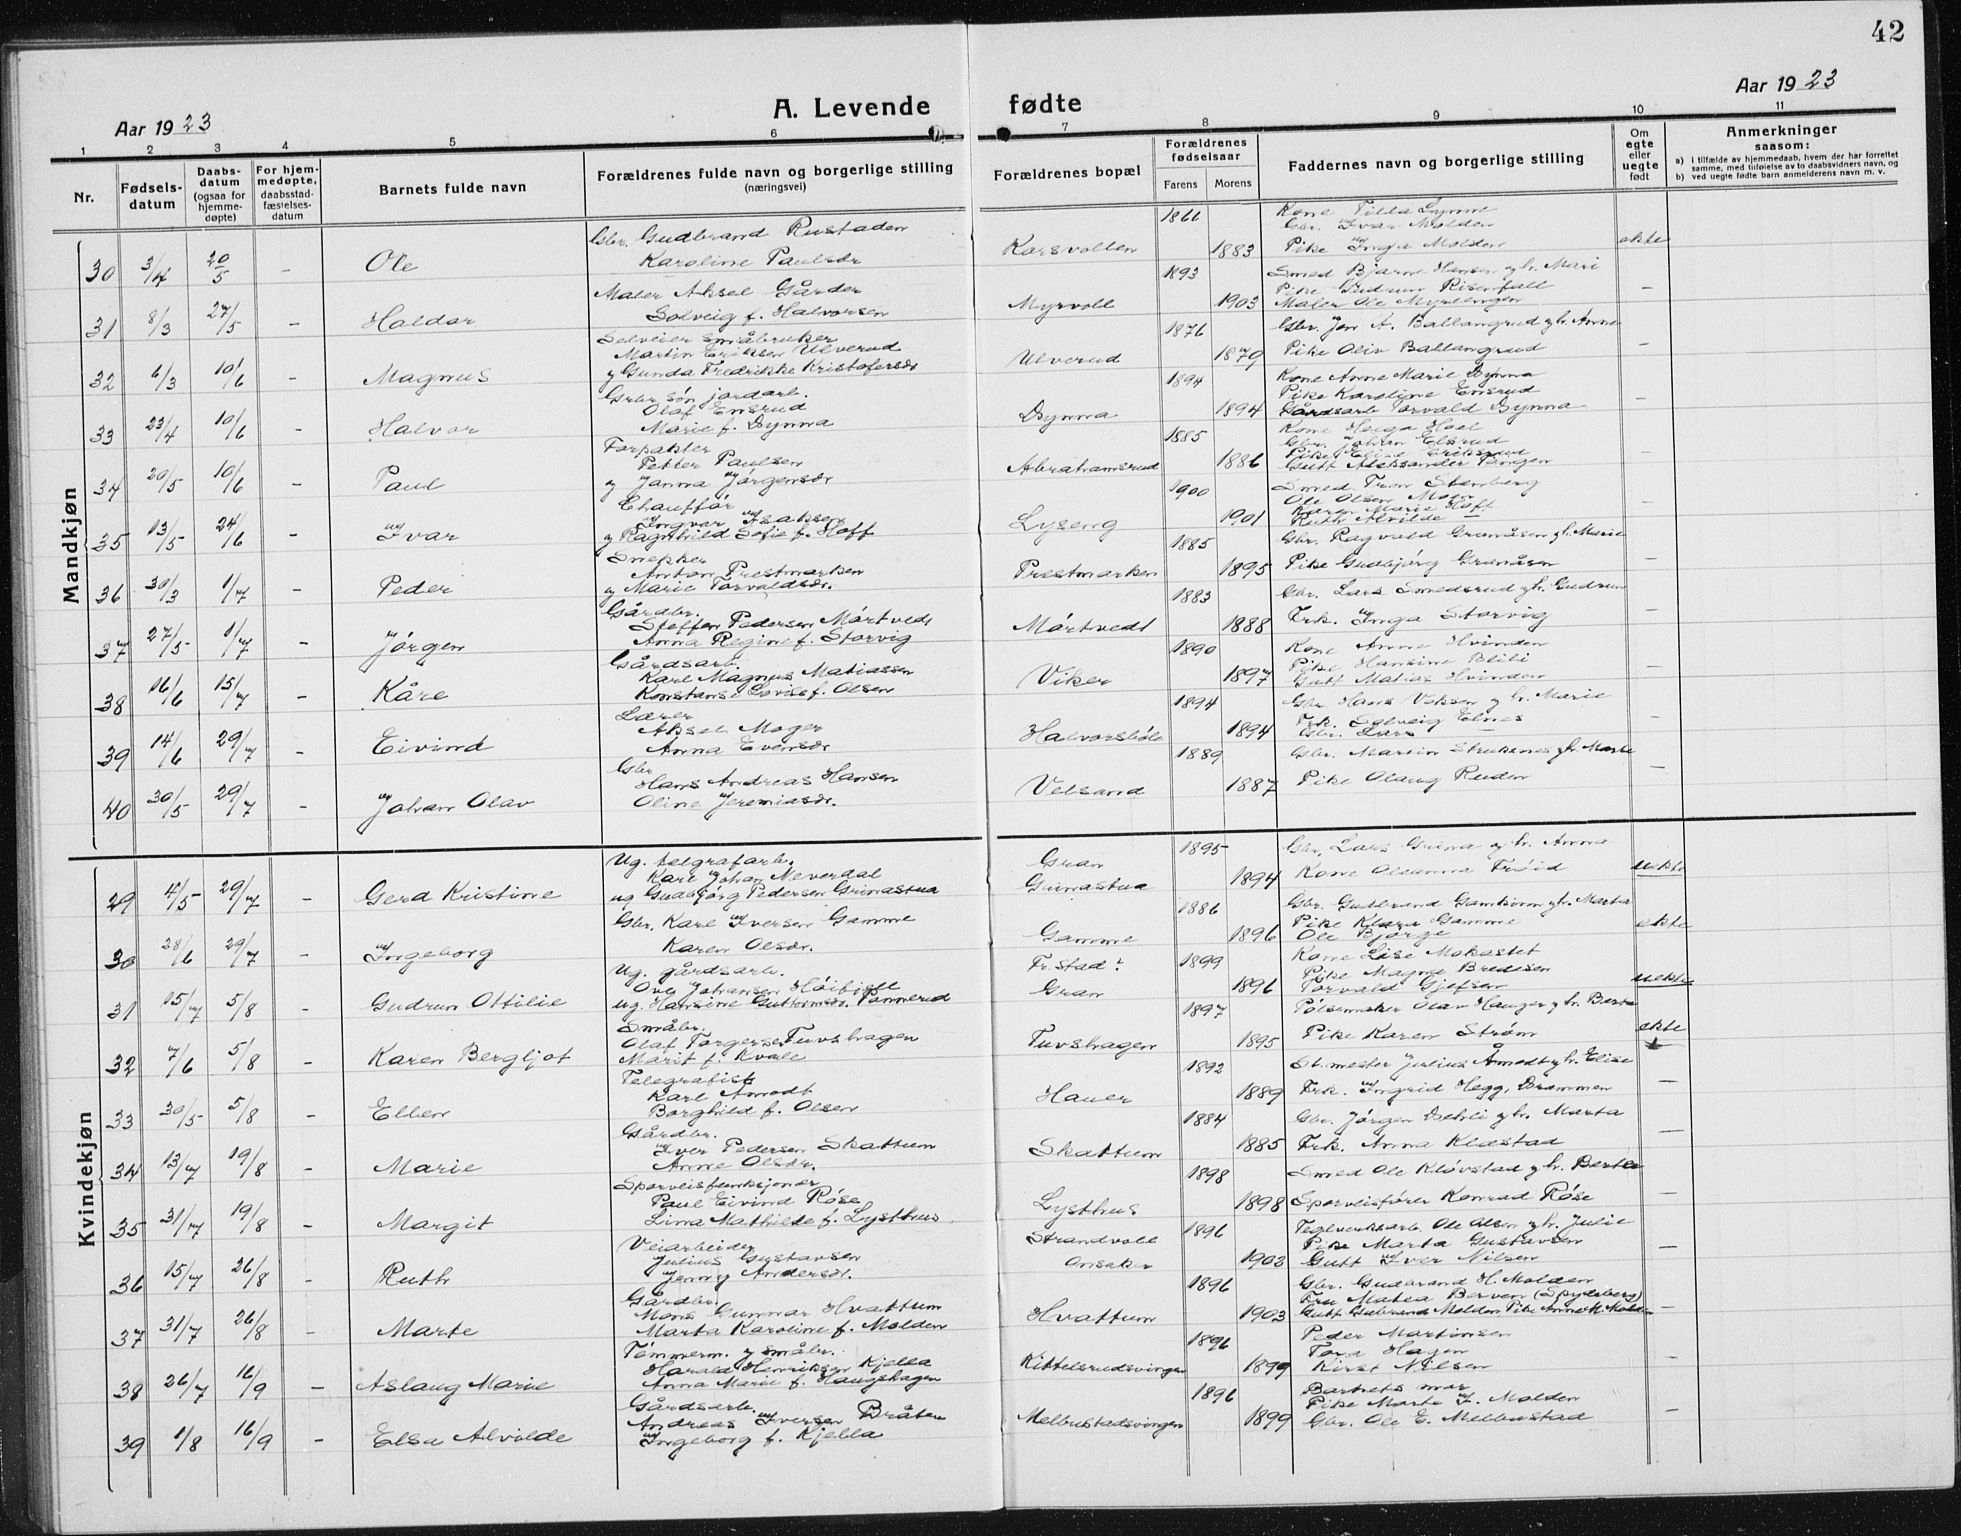 42
Aar 1923
A. Levende
fødte
Aar 1923
1 2 3 4 5 6 7 8 9 10 11
Nr.
Fødsels-
datum
Daabs-
datum
(ogsaa for
hjemme-
døpte)
For hjem-
medøpte,
daabsstad-
fæstelses-
datum
Barnets fulde navn
Forældrenes fulde navn og borgerlige stilling
(næringsvei)
Forældrenes bopæl
Forældrenes
fødselsaar
Farens Morens
Faddernes navn og borgerlige stilling
Om
egte
eller
uegte
født
Anmerkninger
saasom:
a) i tilfælde av hjemmedaab, hvem der har forrettet
samme, med tilføielse av to daabsvidners navn, og
b) ved uegte fødte barn anmelderens navn m. v.
Mandkjøn
30 3/4 20/5 - Ole
Gbr. Gudbrand Rustaden
Karoline Paulsdr
Korsvollen 1866 1883
Kone Tilla Lynne
Gbr. Ivar Molden
Pike Inga Molden
ekte
31 8/3 27/5 - Haldor
Maler Aksel Gårder
Solveig f. Halvorsen
Myrvoll 1893 1903
Smed Bjarne Hansen og h. Mari
Pike Gudrun Risenfall
Maler Ole Myrlengen
-
32 6/3 10/6 - Magnus
Selveier småbruker
Martin Eriksen Ulverud
og Gunda Fredrikke Kristofersdr
Ulverud 1876 1879
Gbr. Jon A. Ballangrud og h. Anne
Pike Oliv Ballangrud
-
33 23/4 10/6 - Halvor
Grbr. søn jordarb.
Olaf Ensrud
Marie f. Dynna
Dynna 1894 1894
Kone Anne Marie Dynna
Pike Karoline Ensrud
Gårdsarb Torvald Dynna
-
34 20/5 10/6 - Paul
Forpakter
Petter Paulsen
og Janna Jørgensdr
Abrahamsrud 1885 1886
Kone Helga Hoel
Gbr. Johan Elsrud
Pike Eline Eriksrud
Gutt Aleksander Tangen
-
35 13/5 24/6 - Ivar
Chauffør
Ingvar Isaksen
og Ragnhild Sofie f. Hoff
Lyseng 1900 1901
Smed Tron Stenberg
Ole Olsen Moen
Karen Marie Hoff
Ruth Alvilde -
-
36 30/3 1/7 - Peder
Snepker
Anton Prestmarken
og Marie Torvaldsdr.
Prestmarken 1885 1895
Gbr. Ragvald Granåsen og h. Marie
Pike Gudbjørg Granåsen
-
37 27/5 1/7 - Jørgen
Gårdbr.
Steffen Pedersen Mørtvedt
Anna Regine f. Storvig
Mørtvedt 1883 1888
Gbr. Lars Smedsrud og h. Gudrun
Frk. Inga Storvig
-
38 16/6 15/7 - Kåre
Gårdsarb.
Karl Magnus Matiassen
Konstanse Lovise f. Olsen
Viker 1890 1897
Kone Anne Hvinden
Pike Hansine Blili
Gutt Matias Hvinden
-
39 14/6 29/7 - Eivind
Lærer
Aksel Moger
Anna Evensdr
Halvorsbøle 1894 1894
Gbr Hans Voksen og h. Marie
Frk. Solveig Elnes
Gbr. Lars -
-
40 30/5 29/7 - Johan Olav
Gbr
Hans Andreas Hansen
Oline Jeremiasdr.
Velsand 1889 1887
Gbr. Martin Struksnes og h. Marte
Pike Olaug Ruden
-
Kvindekjøn
29 4/5 29/7 - Gerd Kristine
Ug. telgrafarb.
Karl Johan Neverdal
ug Gudbjørg Pedersen Grinastua
Gran
Grinastua 1895 1894
Gbr. Lars Grina og h. Anna
Kone Oleanna Frøid
uekte
30 28/6 29/7 - Ingeborg
Gbr. Karl Iversen Gamme
Karen Olsdr.
Gamme 1886 1896
Gbr. Gudbrand Gamkinn og h. Marta
Pike Klara Gamme
Ole Bjørge
ekte
31 15/7 5/8 - Gudrun Ottilie
Ug. gårdsarb.
Ove Johansen Høibjell
ug. Hansine Guttormsdr. Tømmerud
Fr.stad?
Gran 1899 1896
Kone Lise Mokastet
Pike Magna Bredesen
Torvald Gjefsen
uekte
32 7/6 5/8 - Karen Bergljot
Småbr.
Olaf Torgersen Tuvshagen
Marit f. Kvale
Tuvshagen 1897 1895
Pølsemaker Olav Hauger og h. Berta
Pike Karen Strøm
ekte
33 30/5 5/8 - Ellen
Telegrafist
Karl Amodt
Borghild f. Olsen
Hauer 1892 1889
St.mester Julius Åmodt og h. Elise
Frk. Ingrid Hegg, Drammen
-
34 13/7 19/8 - Marie
Gårdbr.
Iver Pedersen Skattum
Anne Olsdr.
Skattum 1884 1885
Gbr. Jørgen Dehli og h. Marta
Frk. Anna Klæstad
-
35 31/7 19/8 - Margit
Sporveisfunksjonær
Paul Eivind Røse
Lina Mathilde f. Lysthus
Lysthus 1898 1898
Smed Ole Kløvstad og h. Berte
Sporveisfører Konrad Røse
-
36 15/7 26/8 - Ruth
Veiarbeider
Julius Gustavsen
Jenny Andersdr.
Strandvoll
Onsaker 1896 1902
Teglverksarb. Ole Olsen og h. Julie
Pike Marta Gustavsen
Gutt Iver Nilsen
-
37 31/7 26/8 - Marte
Gårdbr.
Mons Gunnar Hvattum
Marta Karoline f. Molden
Hvattum 1896 1903
Gbr. Gudbrand H. Molden
Fru Matea Berven (Spydeberg)
Gutt Gudbrand Molden, Pike Anne M. Molden
-
38 26/7 16/9 - Aslaug Marie
Tømmerm. og småbr.
Harald Henriksen Kjella
Anna Marie f. Haugshagen
Kittelsrudsvingen 1896 1899
Peder Martinsen
Tora Hagen
Kirst Nilsen
-
39 1/8 16/9 - Elsa Alvilde
Gårdsarb.
Andreas Iversen Bråten
Ingeborg f. Kjella
Melbustadsvingen 1896 1899
Barnets mor
Pike Marte I. Molden
Gbr. Ole E. Melbustad
-